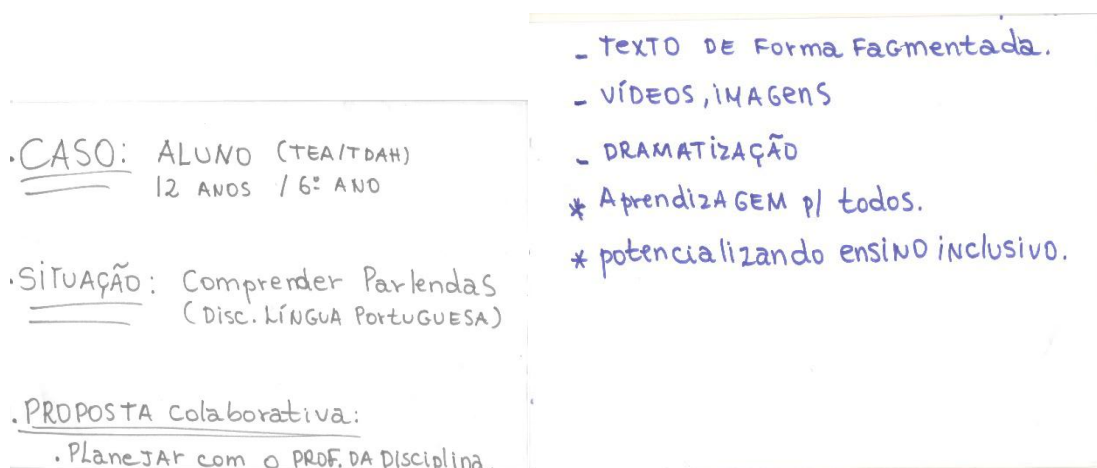 .CASO: ALUNO (TEA/TDAH)
12 ANOS / 6º ANO
.SITUAÇÃO: Comprender Parlendas
(Disc. LÍNGUA PORTUGUESA)
.PROPOSTA colaborativa:
. PLANEJAR com o PROF. DA DISCIPLINA
- TEXTO DE Forma FaGmentada.
- VÍDEOS, iMAGenS
- DRAMATIZAÇÃO
* AprendizAGEM p/ todos.
* potencializando ensiNO iNclusivo.